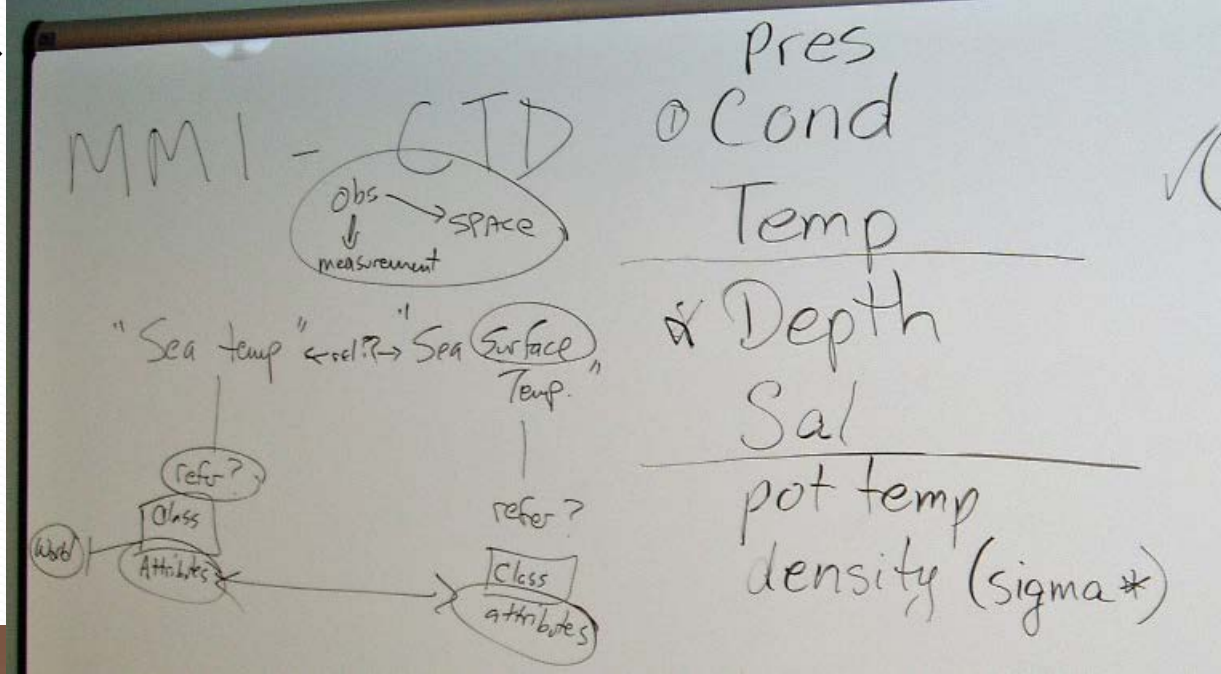 MMI - CTD
Obs
SPACE
measurement
"Sea temp" ←rel?→ "Sea Surface
Temp."
refer?
Class
World
Attributes
refer?
Class
attributes
Pres
① Cond
Temp
Depth
Sal
pot temp
density (sigma*)